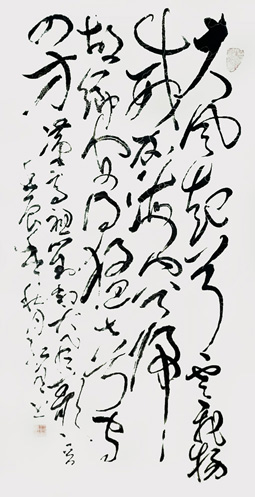 大風起兮雲飛揚
威加海内兮歸
故鄉安得猛士兮守
四方 漢高祖劉邦大風歌一首
秋月